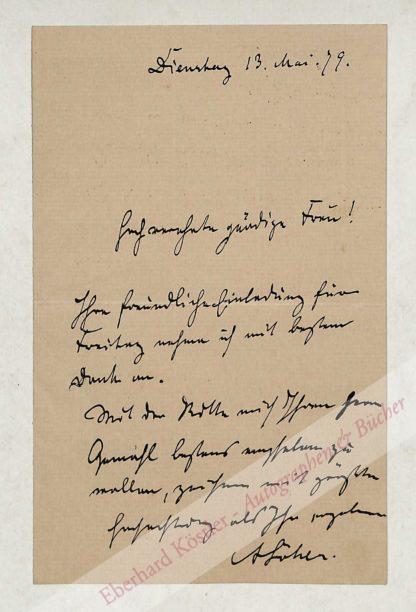 Dienstag 13. Mai. 79.
Hochverehrte gnädige Frau!
Ihre freundliche Einladung für
Freitag nehme ich mit bestem
Dank an.
Mit der Bitte mich Ihrem Herrn
Gemahl bestens empfehlen zu
wollen, zeichne mit größter
Hochachtung als Ihr ergebener
Eberhard Köstner - Autographen & Bücher